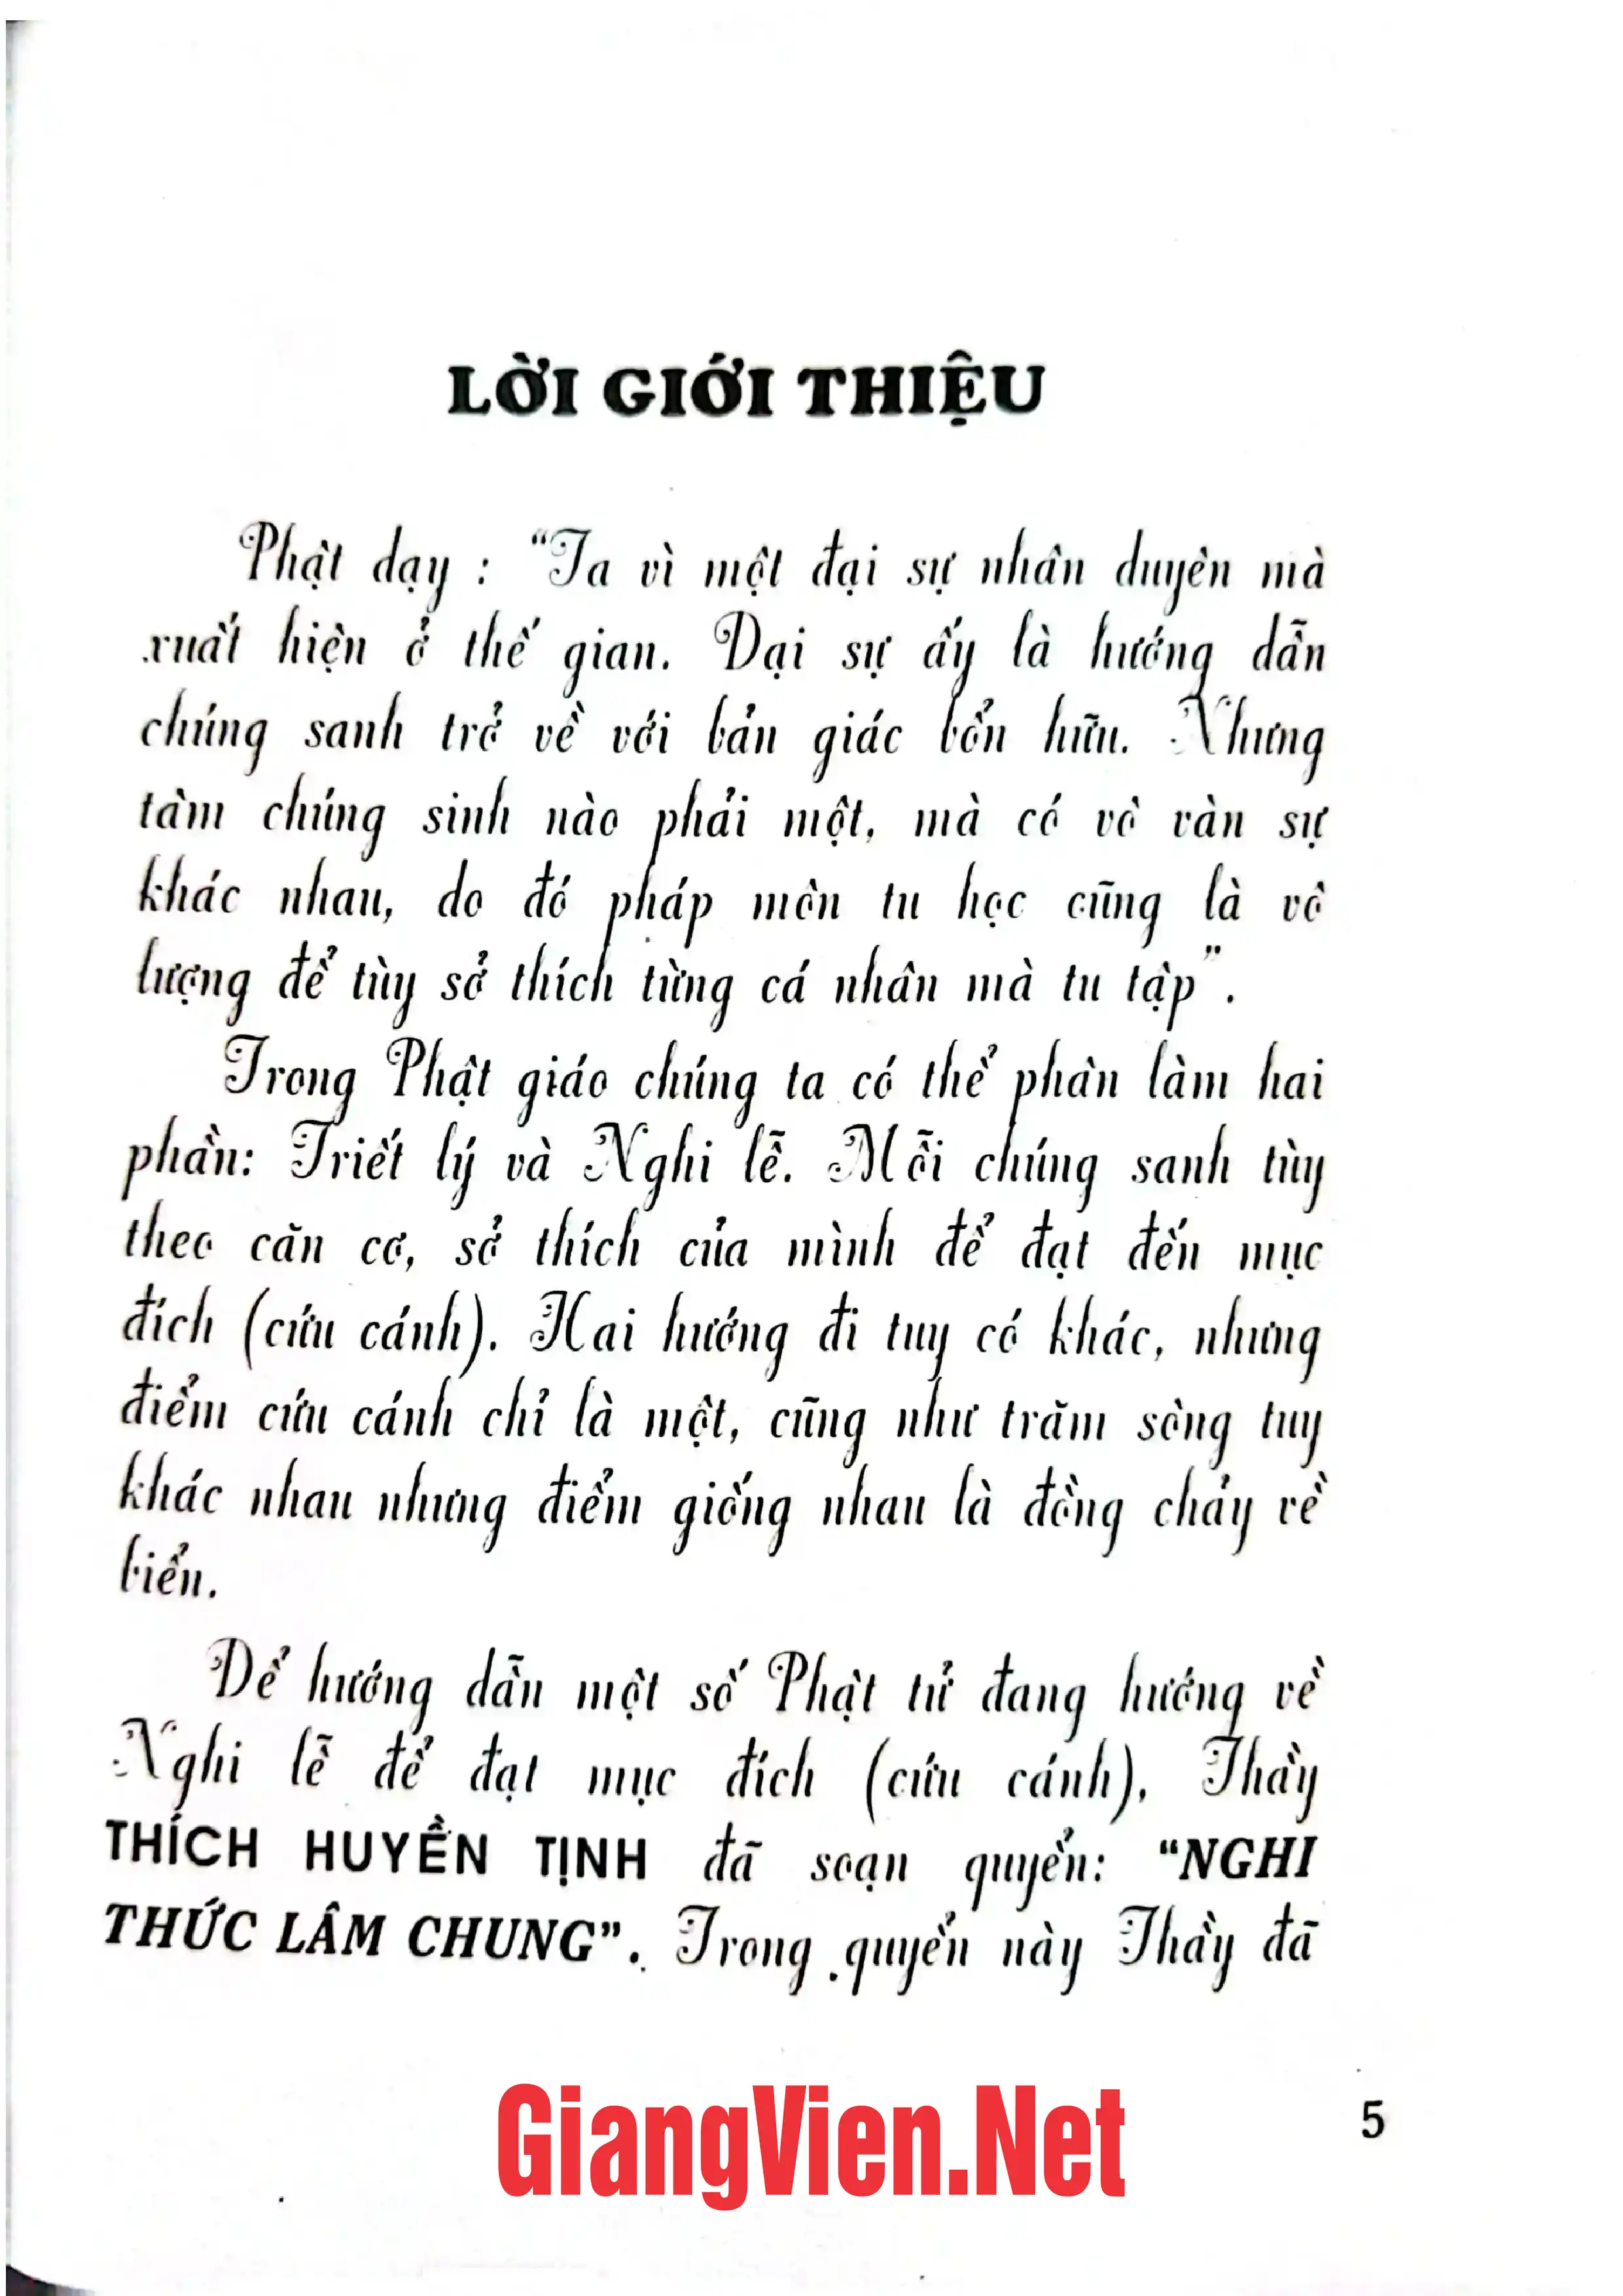 LỜI GIỚI THIỆU
Phật dạy : "Ta vì một đại sự nhân duyên mà
xuất hiện ở thế gian. Đại sự ấy là hướng dẫn
chúng sanh trở về với bản giác bổn hữu. Nhưng
tâm chúng sinh nào phải một, mà có vô vàn sự
khác nhau, do đó pháp môn tu học cũng là vô
lượng để tùy sở thích từng cá nhân mà tu tập".
Trong Phật giáo chúng ta có thể phân làm hai
phần: Triết lý và Nghi lễ. Mỗi chúng sanh tùy
theo căn cơ, sở thích của mình để đạt đến mục
đích (cứu cánh). Hai hướng đi tuy có khác, nhưng
điểm cứu cánh chỉ là một, cũng như trăm sông tuy
khác nhau nhưng điểm giống nhau là đồng chảy về
biển.
Để hướng dẫn một số Phật tử đang hướng về
Nghi lễ để đạt mục đích (cứu cánh), Thầy
THÍCH HUYỀN TỊNH đã soạn quyển: "NGHI
THỨC LÂM CHUNG". Trong quyển này Thầy đã
GiangVien.Net
5